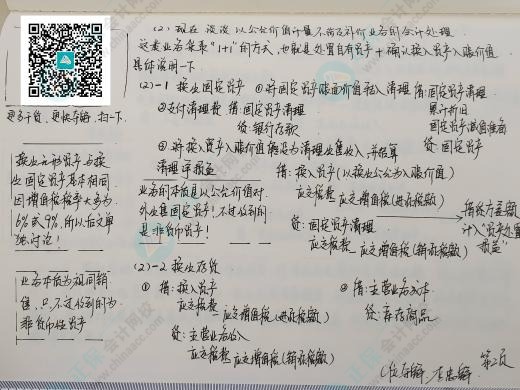 (2) 现在谈谈以公允价值计量不涉及补价业务的会计处理
这类业务采取"1+1"的方式，也就是处置自有资产+确认换入资产入账价值
具体说明一下
(2)-1 换出固定资产 ①将固定资产账面价值转入清理 借:固定资产清理
累计折旧
固定资产减值准备
贷:固定资产
②支付清理费 借:固定资产清理
贷:银行存款
③将换入资产入账价值确认为清理出售收入,并结算
清理净损益
借:换入资产(以换出公允为入账价值)
应交税费 应交增值税(进项税额)
贷:固定资产清理
应交税费 应交增值税(销项税额)
借贷方差额
计入"资产处置
损益"
更多干货,更快存储,扫一下
换出无形资产与换
出固定资产基本相同
因增值税税率大多为
6%或9%,所以后文单
独讨论!
业务本质是以公允价值对
外出售固定资产!不过收到的
是非货币资产!
(2)-2 换出存货
①借:换入资产
应交税费 应交增值税(进项税额)
贷:主营业务收入
应交税费 应交增值税(销项税额)
②借:主营业务成本
贷:库存商品
业务本质为视同销
售,只不过收到的为
非货币性资产
第2页
正保会计网校
www.chinaacc.com